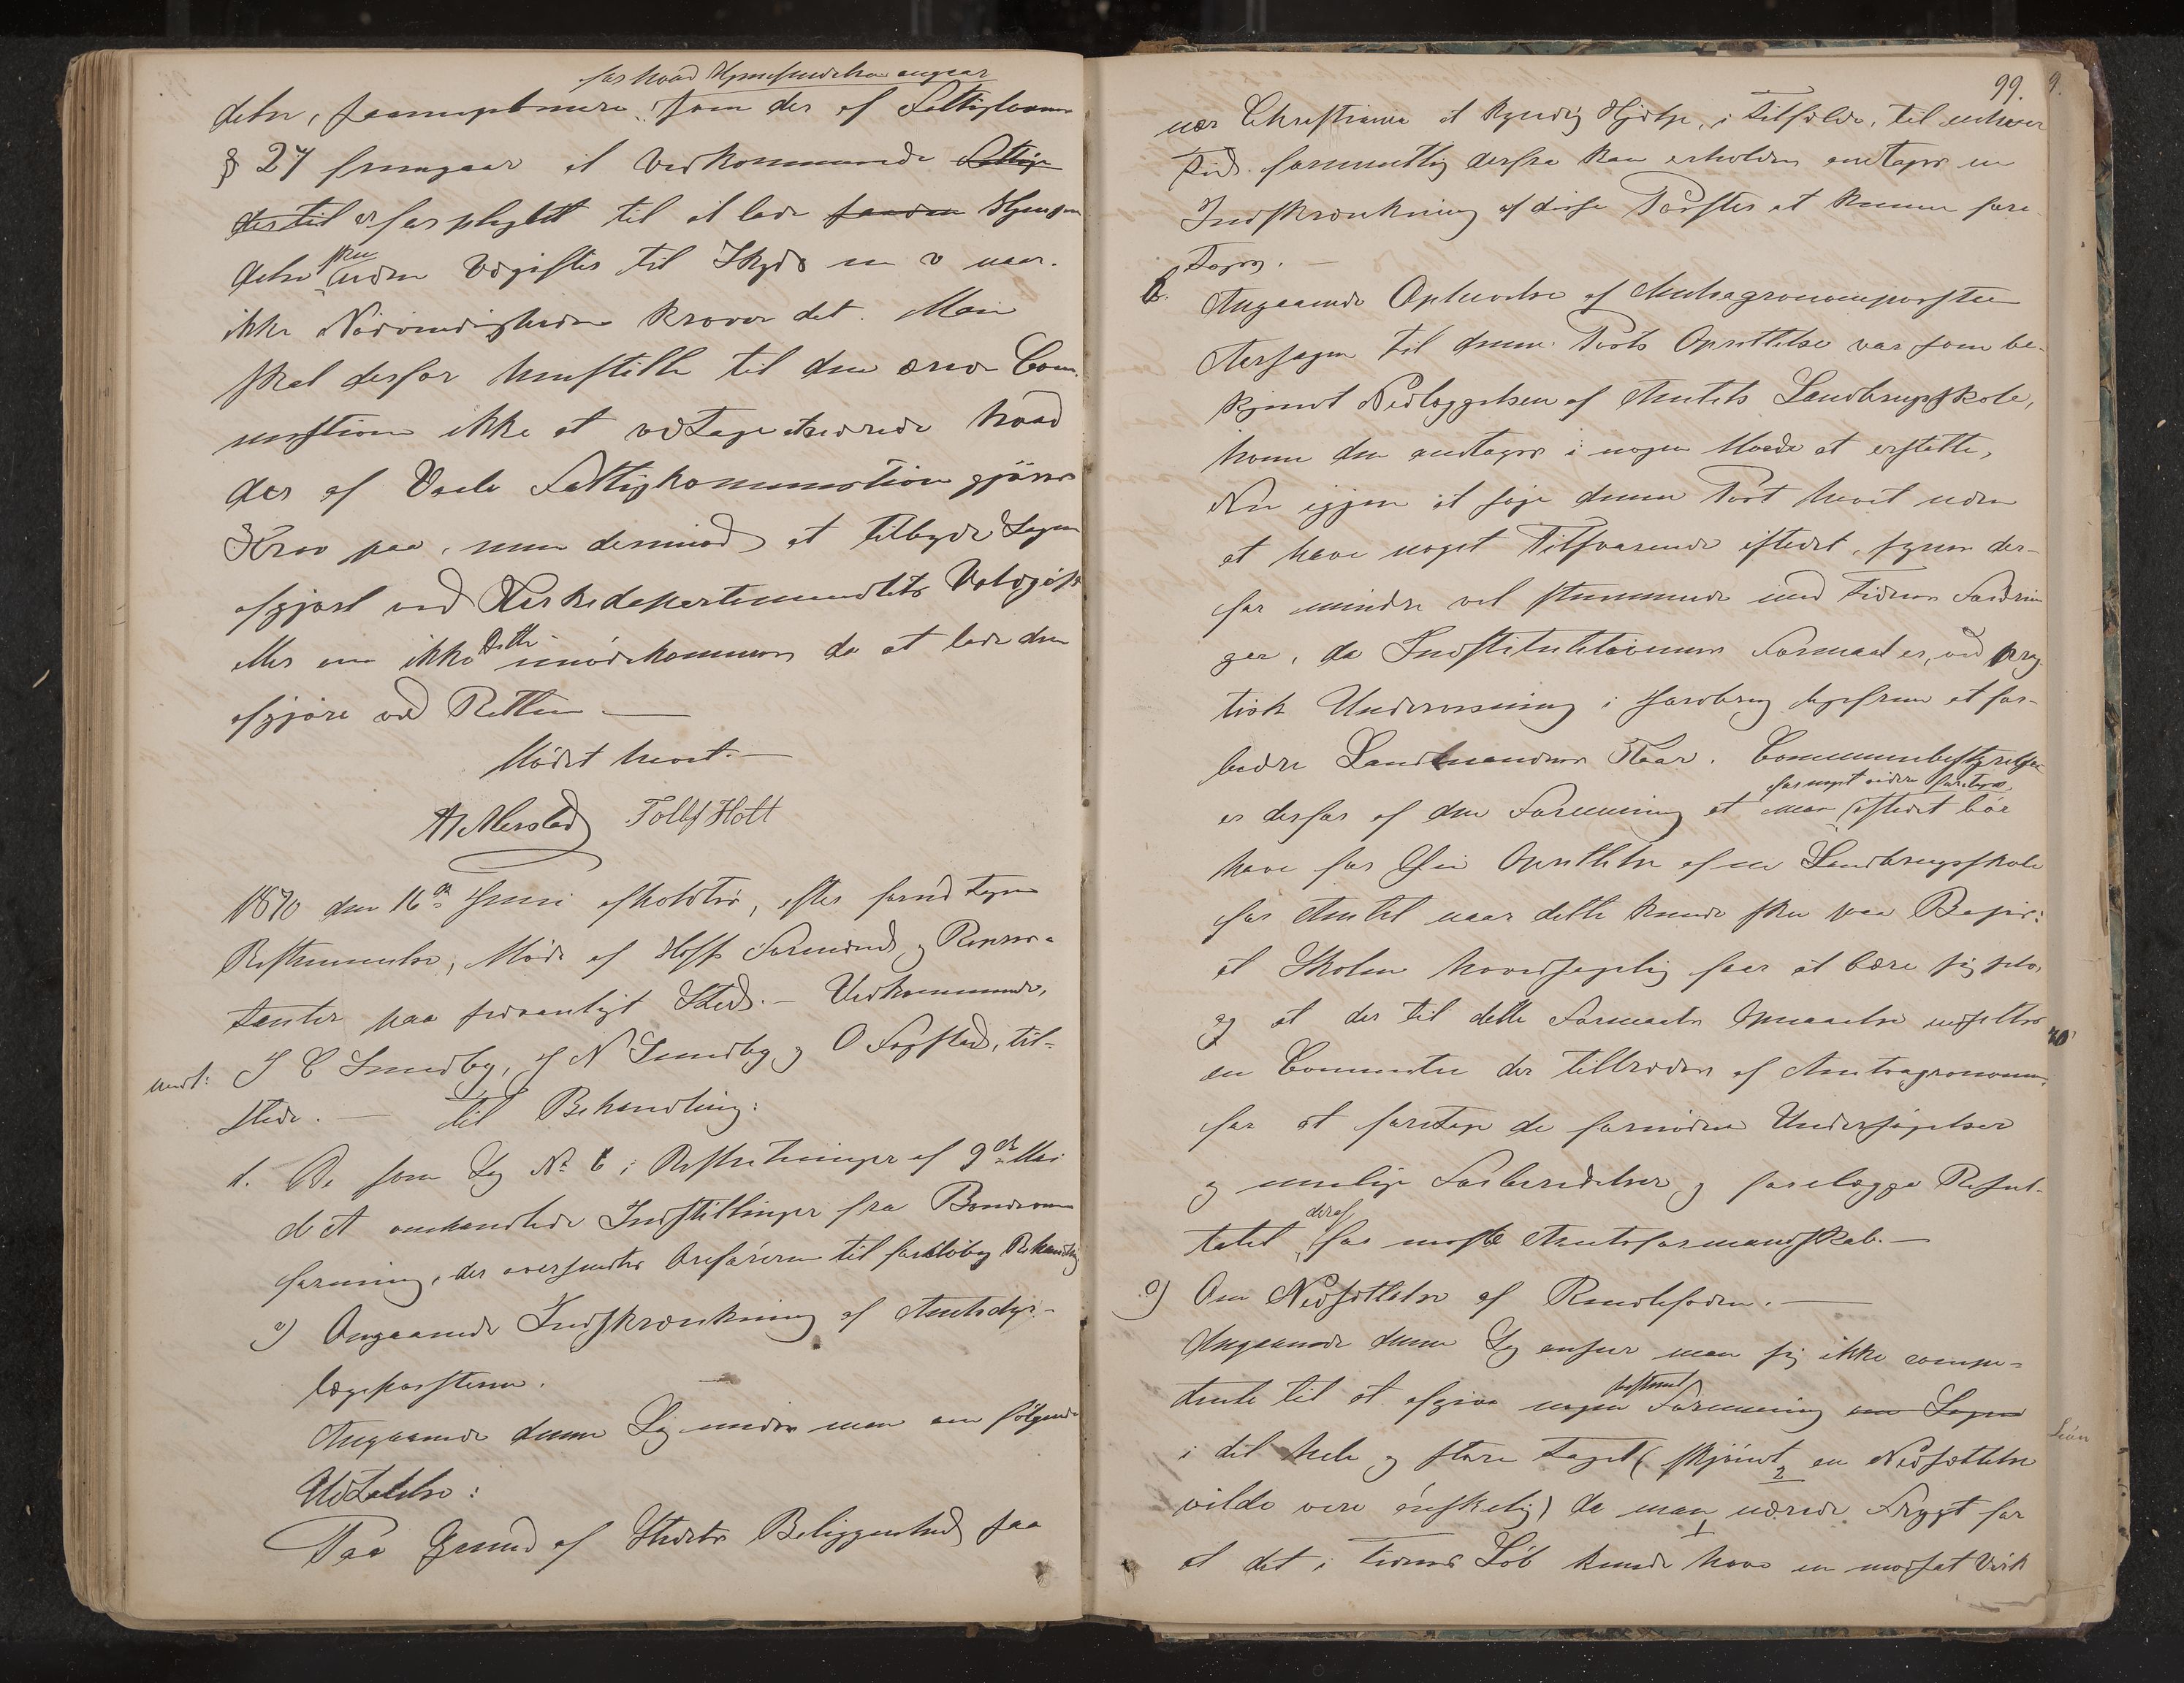 for hvad Hjemsendelsen angaar
delse, saameget mere som der af Fattiglovens
§ 27 fremgaar at Vedkommende Fattig-
der til er forpligtet til at lade saadan Hjemsen
delse ske uden Udgifter til Skyds m v naar
ikke Nødvendigheden kræver det. Man
skal derfor henstille til den ærede Com-
mission ikke at vedtage hvad
der af Vaale Fattigkommission gjøres
Krav paa, men derimod at tilbyde Sagen
afgjort ved Kirkedepartementets
eller om ikke dette imødekommes da at lade den
afgjøre ved Retten. —
Mødet hævet. —
A Mersted Tollef Holt
1870 den 16de Juni afholdtes, efter forud tagen
Bestemmelse, Møde af Hoffs Formænd & Repræsen-
tanter paa sædvanligt Sted. — Vedkommende,
undt: J C Sundby, N Sundby & O Fogstad, til-
stede. — Til Behandling:
1. De som Sag No 6 i Beslutninger af 9de Mai
d A omhandlede Indstillinger fra Bondeven
forening, der oversendtes Ordføreren til foreløbig Behandling
a) Angaaende Indskrænkning af Amtsdyr-
lægeposterne.
Angaaende denne Sag enedes man om følgende
Udtalelse:
Paa Grund af Stedets Beliggenhed saa
99.
nær Christiania at kyndig Hjælp, i Tilfælde, til enhver
Tid formentlig derfra kan erholdes antages en
Indskrænkning af disse Poster at kunne fore-
tages. —
b. Angaaende Ophævelse af Amtsagronomposten
Aarsagen til denne Posts Oprettelse var som be-
kjendt Nedlæggelsen af Amtets Landbrugsskole,
hvem den antages i nogen Maade at erstatte,
Nu igjen at søge denne Post hævet uden
at have noget Tilsvarende istedet, synes der-
for mindre vel stemmende med Tidens Fordrin
ger, da Institutionens Formaal er, ved prak-
tisk Undervisning i Jordbrug ligefrem at for-
bedre Landmandens Kaar. Communebestyrelsen
er derfor af den Formening at man for noget videre foretages istedet bør
have for Øie Oprettelse af en Landbrugsskole
for Amtet naar dette kunde ske paa Basis:
at Skolen hovedsagelig faar at bære sig selv,
og at der til dette Formaals Opnaaelse nedsættes
en Committee der tiltrædes af Amtsagronomen,
for at foretage de fornødne Undersøgelser
og mulige Forberedelser og forelægge Resul-
tatet deraf for næste Amtsformandskab. —
c) Om Nedsættelse af Rentefoden. —
Angaaende denne Sag anser man sig ikke compe-
tente til at afgive nogen bestemt Formening om Sagen
i det hele og store taget (skjøndt en Nedsættelse
vilde være ønskelig) da man nærede Frygt for
at det i Tidens Løb kunde have en modsat Virk